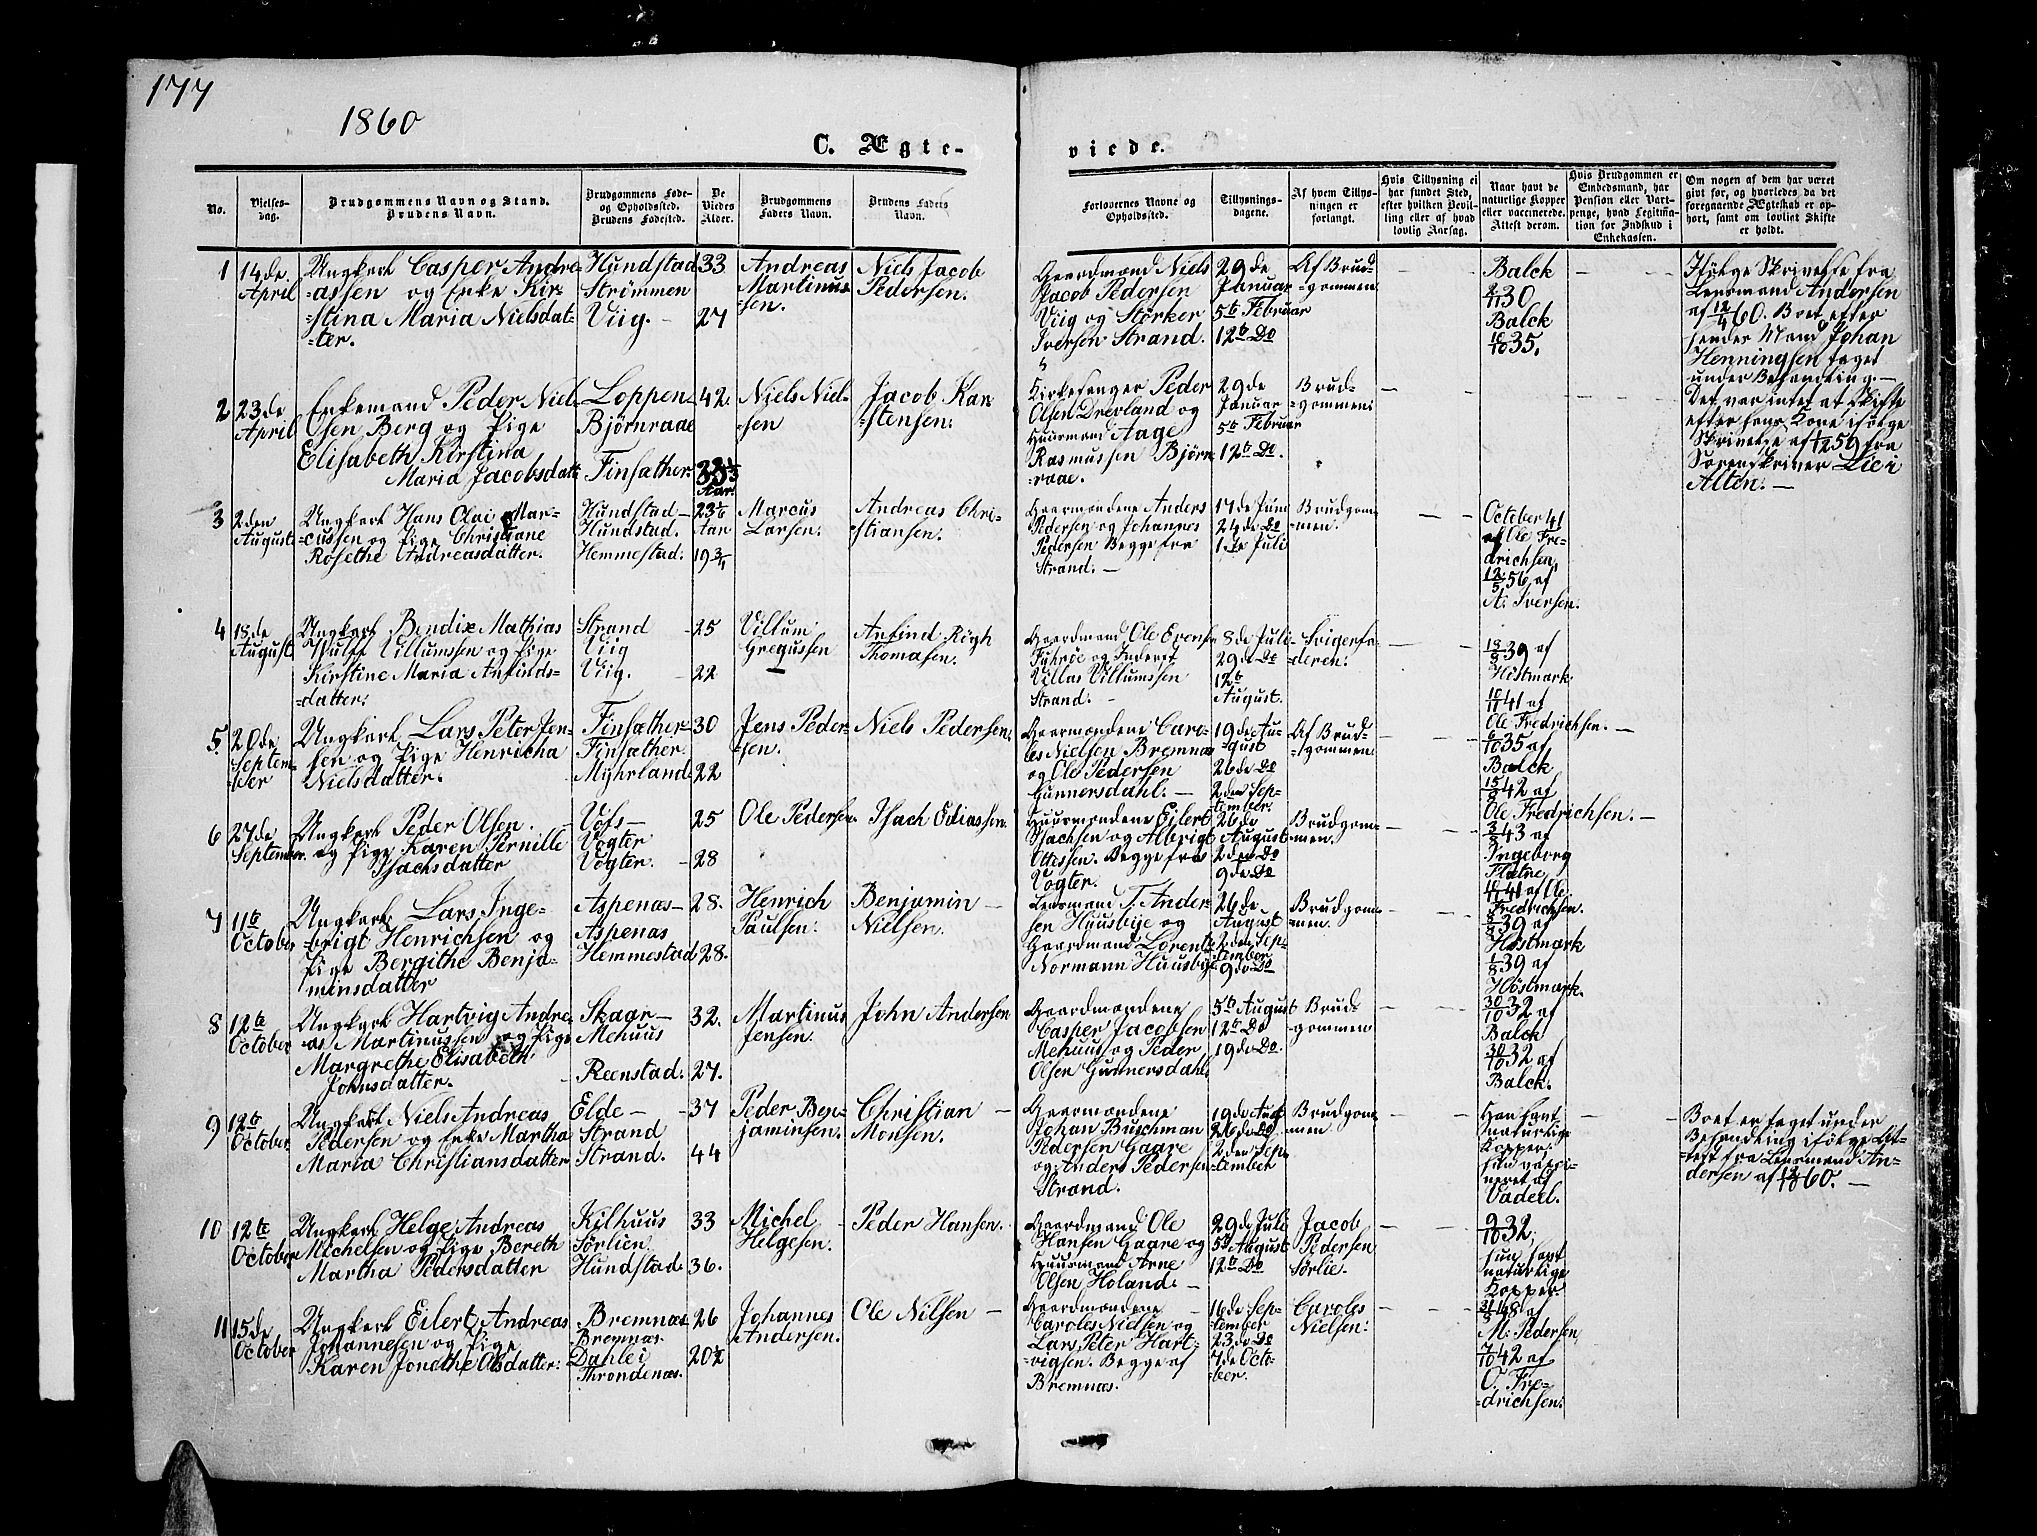 177
1860
C. Ægte-
viede.
No.
Vielses-
dag.
Brudgommens Navn og Stand.
Brudens Navn.
Brudgommens Føde-
og Opholdssted.
Brudens Fødested.
De
Viedes
Alder.
Brudgommens
Faders Navn.
Brudens Faders
Navn.
Forlovernes Navne og
Opholdssted.
Tillysnings-
dagene.
Af hvem Tillys-
ningen er
forlangt.
Hvis Tillysning ei
har fundet Sted,
efter hvilken Bevil-
ling eller af hvad
lovlig Aarsag.
Naar havt de
naturlige Kopper
eller vaccinerede.
Attest derom.
Hvis Brudgommen er
Embedsmand, har
Pension eller Vart-
penge, hvad Legitima-
tion for Indskud i
Enkekassen.
Om nogen af dem har været
gift før, og hvorledes da det
foregaaende Ægteskab er op-
hørt, samt om lovligt Skifte
er holdt.
1
14de
April
Ungkarl Casper Andre-
assen og Enke Kir-
=stina Maria Nielsdat-
=ter.
Hundstad
Strømmen
Viig. -
33
27
Andreas
Martinus-
=sen.
Niels Jacob
Pedersen.
Gaardmand Niels
Jacob Pedersen
Viig og Størker
Iversen Strand.
29de
Januar
5te Februar
12te Do
Af Brud
=gommen
Balck
2/11 30
Balck
10/10 35.
Ifølge Skrivelse fra
Lensmand Andersen
af 12/4 60. Boet efter
hendes Mand Johan
Henningsen taget
under Behandling.—
2
23de
April
Enkemand Peder Niel-
sen Berg og Pige
Elisabeth Kirstina
Maria Jacobsdatt
Loppen-
Bjørnraae
Finsæther
42.
33 1/3
Aar.
Niels Niel-
=sen
Jacob Kar
=stensen.
Kirkesanger Peder
Olsen Drevland og
Huusmand Aage
Rasmussen Bjørn
=raae.
29de
Januar
5te Februar
12te Do.
Brud-
=gommen
Det var intet at skifte
efter hans Kone ifølge
Skrivelse af 1/12 59 fra
Sorenskriver Lie i
Alten. —
3
2den
August
Ungkarl Hans Olai Mar-
cussen og Pige Christiane
Rosethe Andreasdatter.
Hundstad—
Hundstad.
Hemmestad.
23 1/6
Aar
19 3/4
Marcus
Larsen.
Andreas Chri-
=stiansen.
Gaarmændene Anders
Pedersen og Johannes
Pedersen Begge fra
Strand. —
17de Juni
24de Do
1ste Juli
Brudgom-
men.
October 41
af Ole Fre-
drichsen,
12/5 56 af
A. Iversen.
4
18de
August
Ungkarl Bendix Mathias
Wulff Villumsen og Pige
Kirstine Maria Anfinds-
=datter.
Strand
Viig
Viig.
25
22
Villum
Gregussen
Anfind Righ
Thomasen.
Gaardmand Ole Evens-
Fuhrøe og Inderst
Villas Villumssen
Strand. -
8de Juli
29de Do
12te
August.
Svigerfa-
=deren.
18/9 39 af
Høstmark
10/11 41 af
Ole Fredrichsen. —
5.
20de
Septem-
=ber
Ungkarl Lars Peter Jen-
sen og Pige Henricha
Nielsdatter.
Finsæther
Finsæther
Myhrland.
30
22
Jens Peder-
=sen.
Niels Pedersen.
Gaarmændene Caro-
les Nielsen Bremnæs
og Ole Pedersen
Gunnersdahl. —
19de Au-
=gust
26de Do
2den Sep-
tember.
Af Brud
=gommen
6/10 35 af
Balck
15/9 42 af
Ole Fredrichsen. —
6
27de
September
Ungkarl Peder Olsen.
og Pige Karen Pernille
Isachsdatter
Vogter
Vogter.
25
28
Ole Pedersen.
Isach Ediassen.
Huusmændene Eilert
Isachsen og Albrigt
Ottesen. Begge fra
Vogter.
26de
August
2den Do
9de Do
Brudgom-
men.
3/3 43 af
Ingeborg
10/11 41 af Ole
Fredrichsen.
7
11te
October
Ungkarl Lars Inge-
=brigt Henrichsen og
Pige Bergithe Benja-
minsdatter
Aspenæs—
Aspenæs
Hemmestad
28.
28.
Henrich
Paulsen.
Benjamin —
Nielsen.
Lensmand T. Ander-
sen Huusbye og
Gaardmand Lorents
Normann Huusbye
26de
August
2den Sep-
tember
9de Do
Brudgom-
men.
8/8 39 af
Høstmark
1/8 39 af
Høstmark.
8
12te
October
Ungkarl Hartvig Andre-
as Martinussen og Pige
Margrethe Elisabeth
Johnsdatter.
Skaar—
Mehuus
Reenstad.
32.
27.
Martinus
Jensen.
John Andersen
Gaardmændene
Casper Jacobsen
Mehuus og Peder
Olsen Gunnersdahl
5te August
12te Do
19de Do.
Brud-
gommen
30/10 32 af
Balck
30/10 32 af
Balck.
9
12te
October
Ungkarl Niels Andreas
Pedersen og Enke Martha
Maria Christiansdatter
Elde—
Strand
Strand.
37
44
Peder Ben-
jaminsen.
Christian —
Monsen.
Gaarmændene
Johan Buschman
Pedersen Gaare
og Anders Pedersen
Strand.
19de Aug
26de Do
2den Sep-
=tember
Brudgom-
men.
Han havt
naturlige
Kopper.
Hun vacci-
neret af
Vadel.
Boet er taget under
Behandling ifølge At-
=test fra Lensmand An-
dersen af 12/10 60. —
10
12te
October
Ungkarl Helge Andreas
Michelsen og Pige Bereth
Martha Pedersdatter
Kilhuus
Sørlien
Hundstad.
33
36.
Michel
Helgesen.
Peder Hansen.
Gaardmand Ole
Hansen Gaare og
Huusmand Arne
Olsen Holand. —
29de Juli
5te August
12te Do
Jacob
Pedersen
Sørlie.
9/10 32,
hun havt
naturlige
Kopper.
11
15de
October
Ungkarl Eilert Andreas
Johannesen og Pige
Karen Jonethe Olsdatter.
Bremnæs
Bremnæs
Dahle i
Throndenæs.
26
20 1/2
Johannes
Andersen.
Ole Nilsen —
Gaardmændene
Caroles Nielsen og
Lars Peter Hart-
=vigsen. Begge af
Bremnæs.
16de Sep-
=tember
23de Do
7de Octo-
=ber.
Caroles
Nielsen.
M. Pedersen
7/10 42 af
O. Fre-
=drichsen.